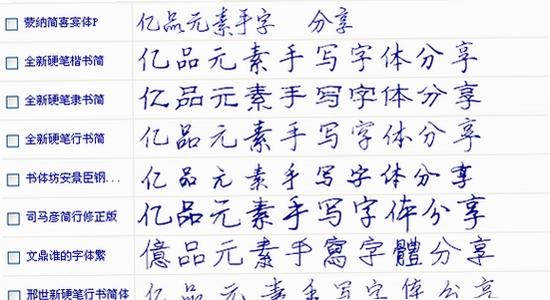 蒙纳简喜宴体P 亿品元素手字 分享
全新硬笔楷书简 亿品元素手写字体分享
全新硬笔隶书简 亿品元素手写字体分享
全新硬笔行书简 亿品元素手写字体分享
书体坊安景臣钢... 亿品元素手写字体分享
司马彦简行修正版 亿品元素手写字体分享
文鼎谁的字体繁 億品元素手寫字體分享
邢世新硬笔行书简体 亿品元素手写字体分享